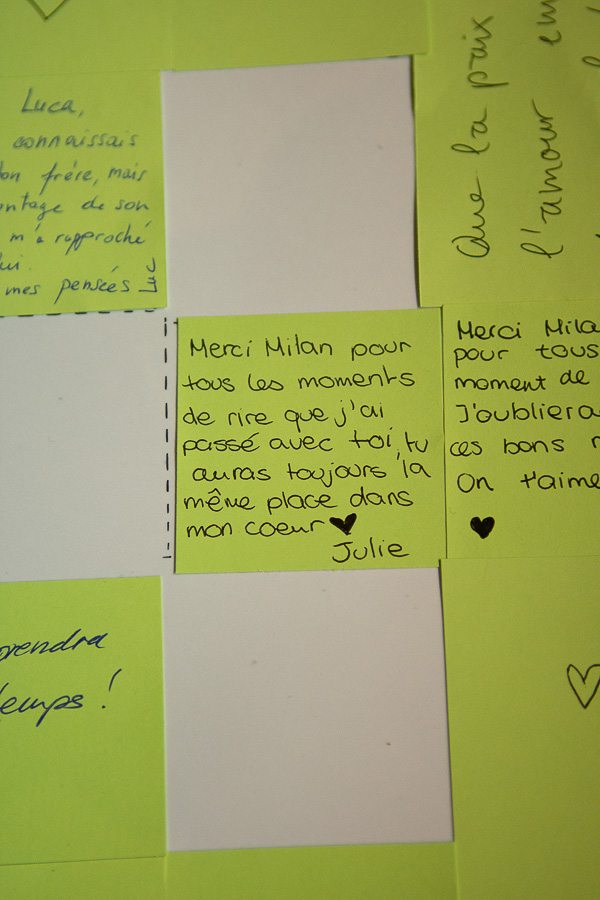 Luca,
connaissais
frére, mais
de son
m'a rapproché
mes pensées
Luc
Que la paix
l'amour em
Merci Milan pour
tous les moments
de rire que j'ai
passé avec toi, tu
auras toujours la
même place dans
mon coeur
Julie
Merci Mila
pour tous
moment de
J'oubliera
ces bons
On t'aime
prendra
temps !